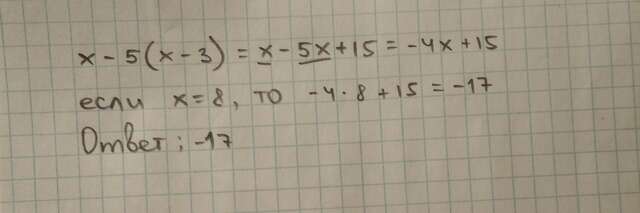 x - 5(x - 3) = x - 5x + 15 = -4x + 15
если x = 8, то -4 · 8 + 15 = -17
Ответ: -17